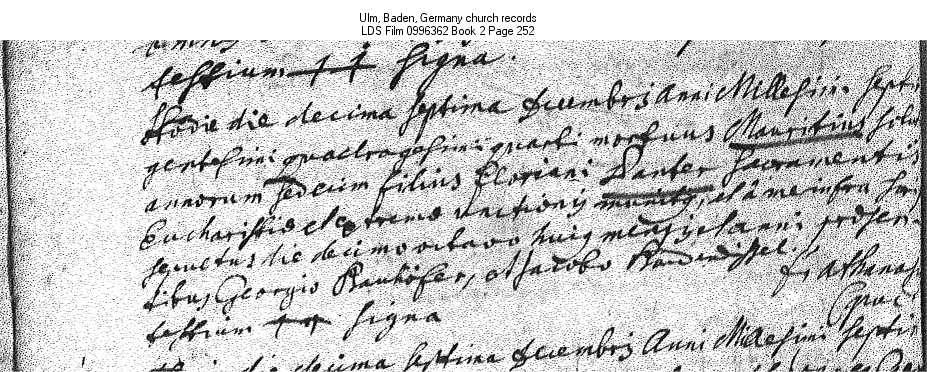 Ulm, Baden, Germany church records
LDS Film 0996362 Book 2 Page 252
testium ++ signa.
Hodie die decima septima decembris Anni Millesimi septin
gentesimi quadragesimi quarti mortuus Mauritius
annorum sedecim filius Floriani Danter Sacramentis
Eucharistiae et extremae unctionis munitus, et a me infra
sepultus die decimo octavo huius mensis et anni praesen-
tibus Georgio et Jacobo
testium ++ signa
die decima septima decembris Anni Millesimi septin